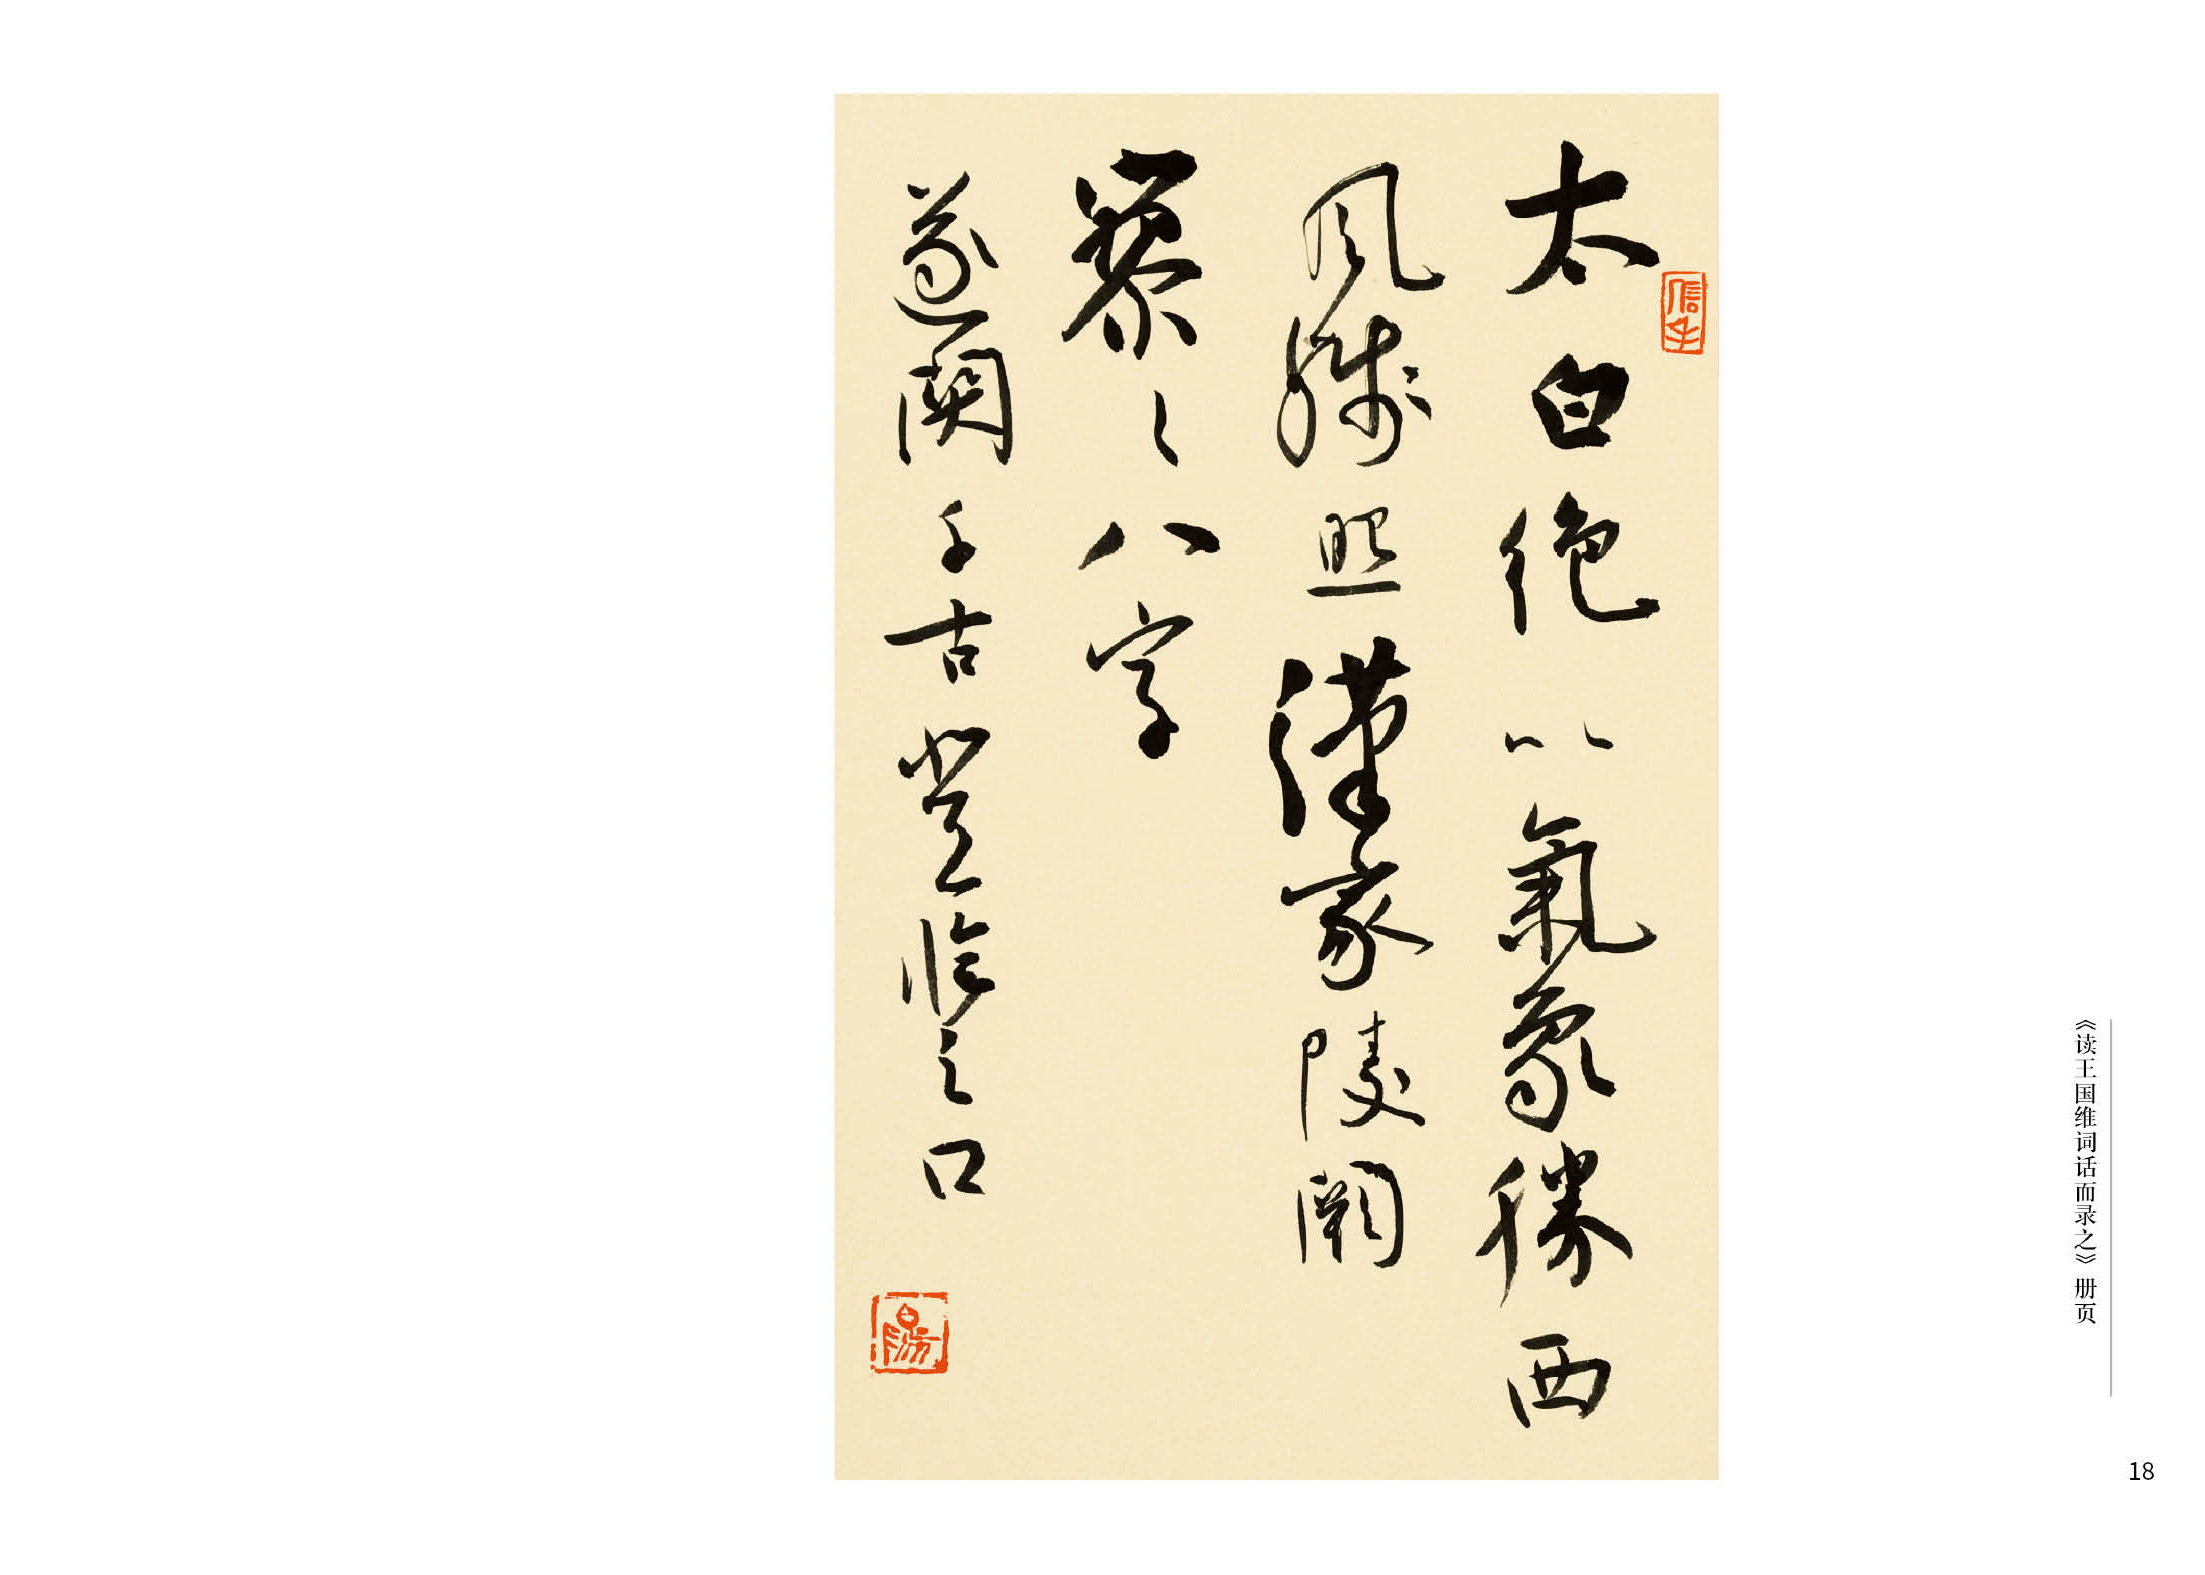 太白絕以氣象勝西
風殘照漢家陵闕
寥々八字
遂關千古登臨之口
信手
《读王国维词话而录之》册页
18